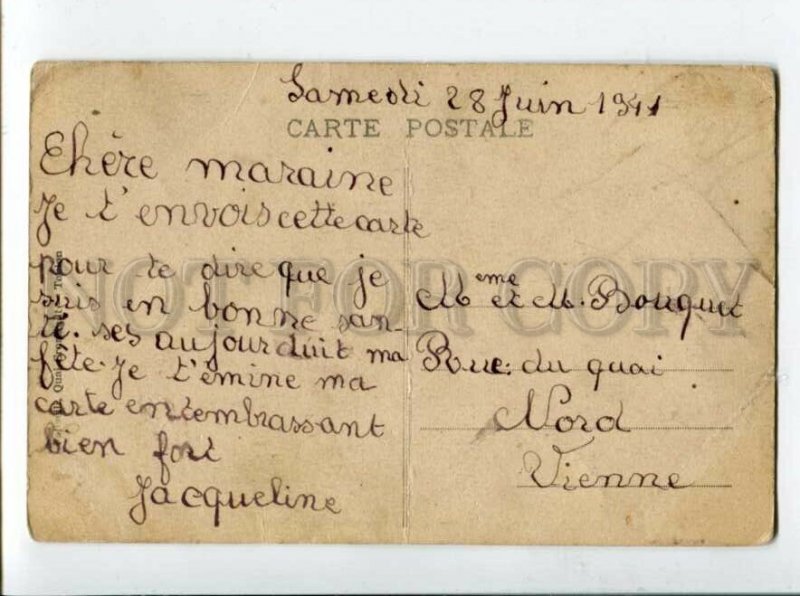 Samedi 28 Juin 1941
CARTE POSTALE
Chère maraine
Je t'envois cette carte
pour te dire que je
suis en bonne san-
té. ses aujourduit ma
fête. Je t'émine ma
carte en tembrassant
bien fort
Jacqueline
Meme et M. Bouquet
Rue: du quai
Nord
Vienne
NOT FOR COPY